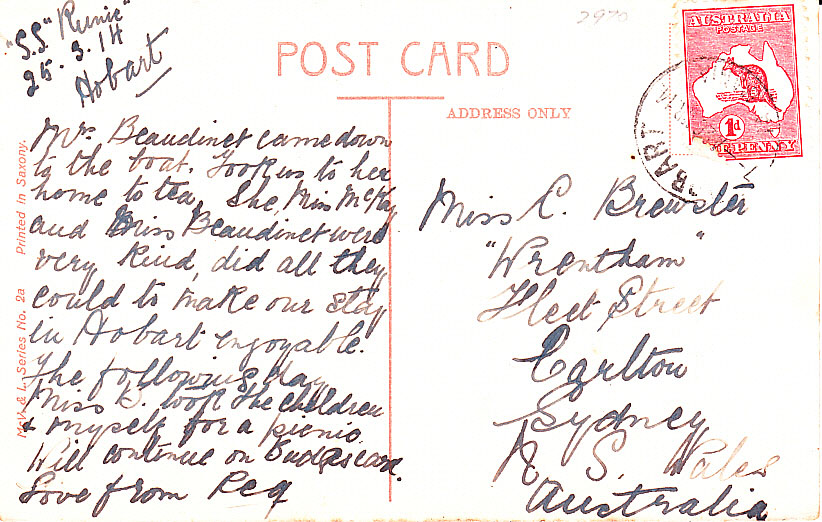 2970
"S.S" Runic"
25.3.14
Hobart
POST CARD
ADDRESS ONLY
AUSTRALIA
POSTAGE
1d
PENNY
Mrs. Beaudinet came down
to the boat. Took us to her
home to tea, She, Miss McKay
and Miss Beaudinet were
very kind, did all they
could to make our stay
in Hobart enjoyable.
The following day
Miss B. took the children
& myself for a picnic.
Will continue on card.
Love from Reg
Miss C. Brewster
"Wrentham"
Fleet Street
Carlton
Sydney
N. S. Wales
Australia
McV. & L. Series No. 2a Printed in Saxony.